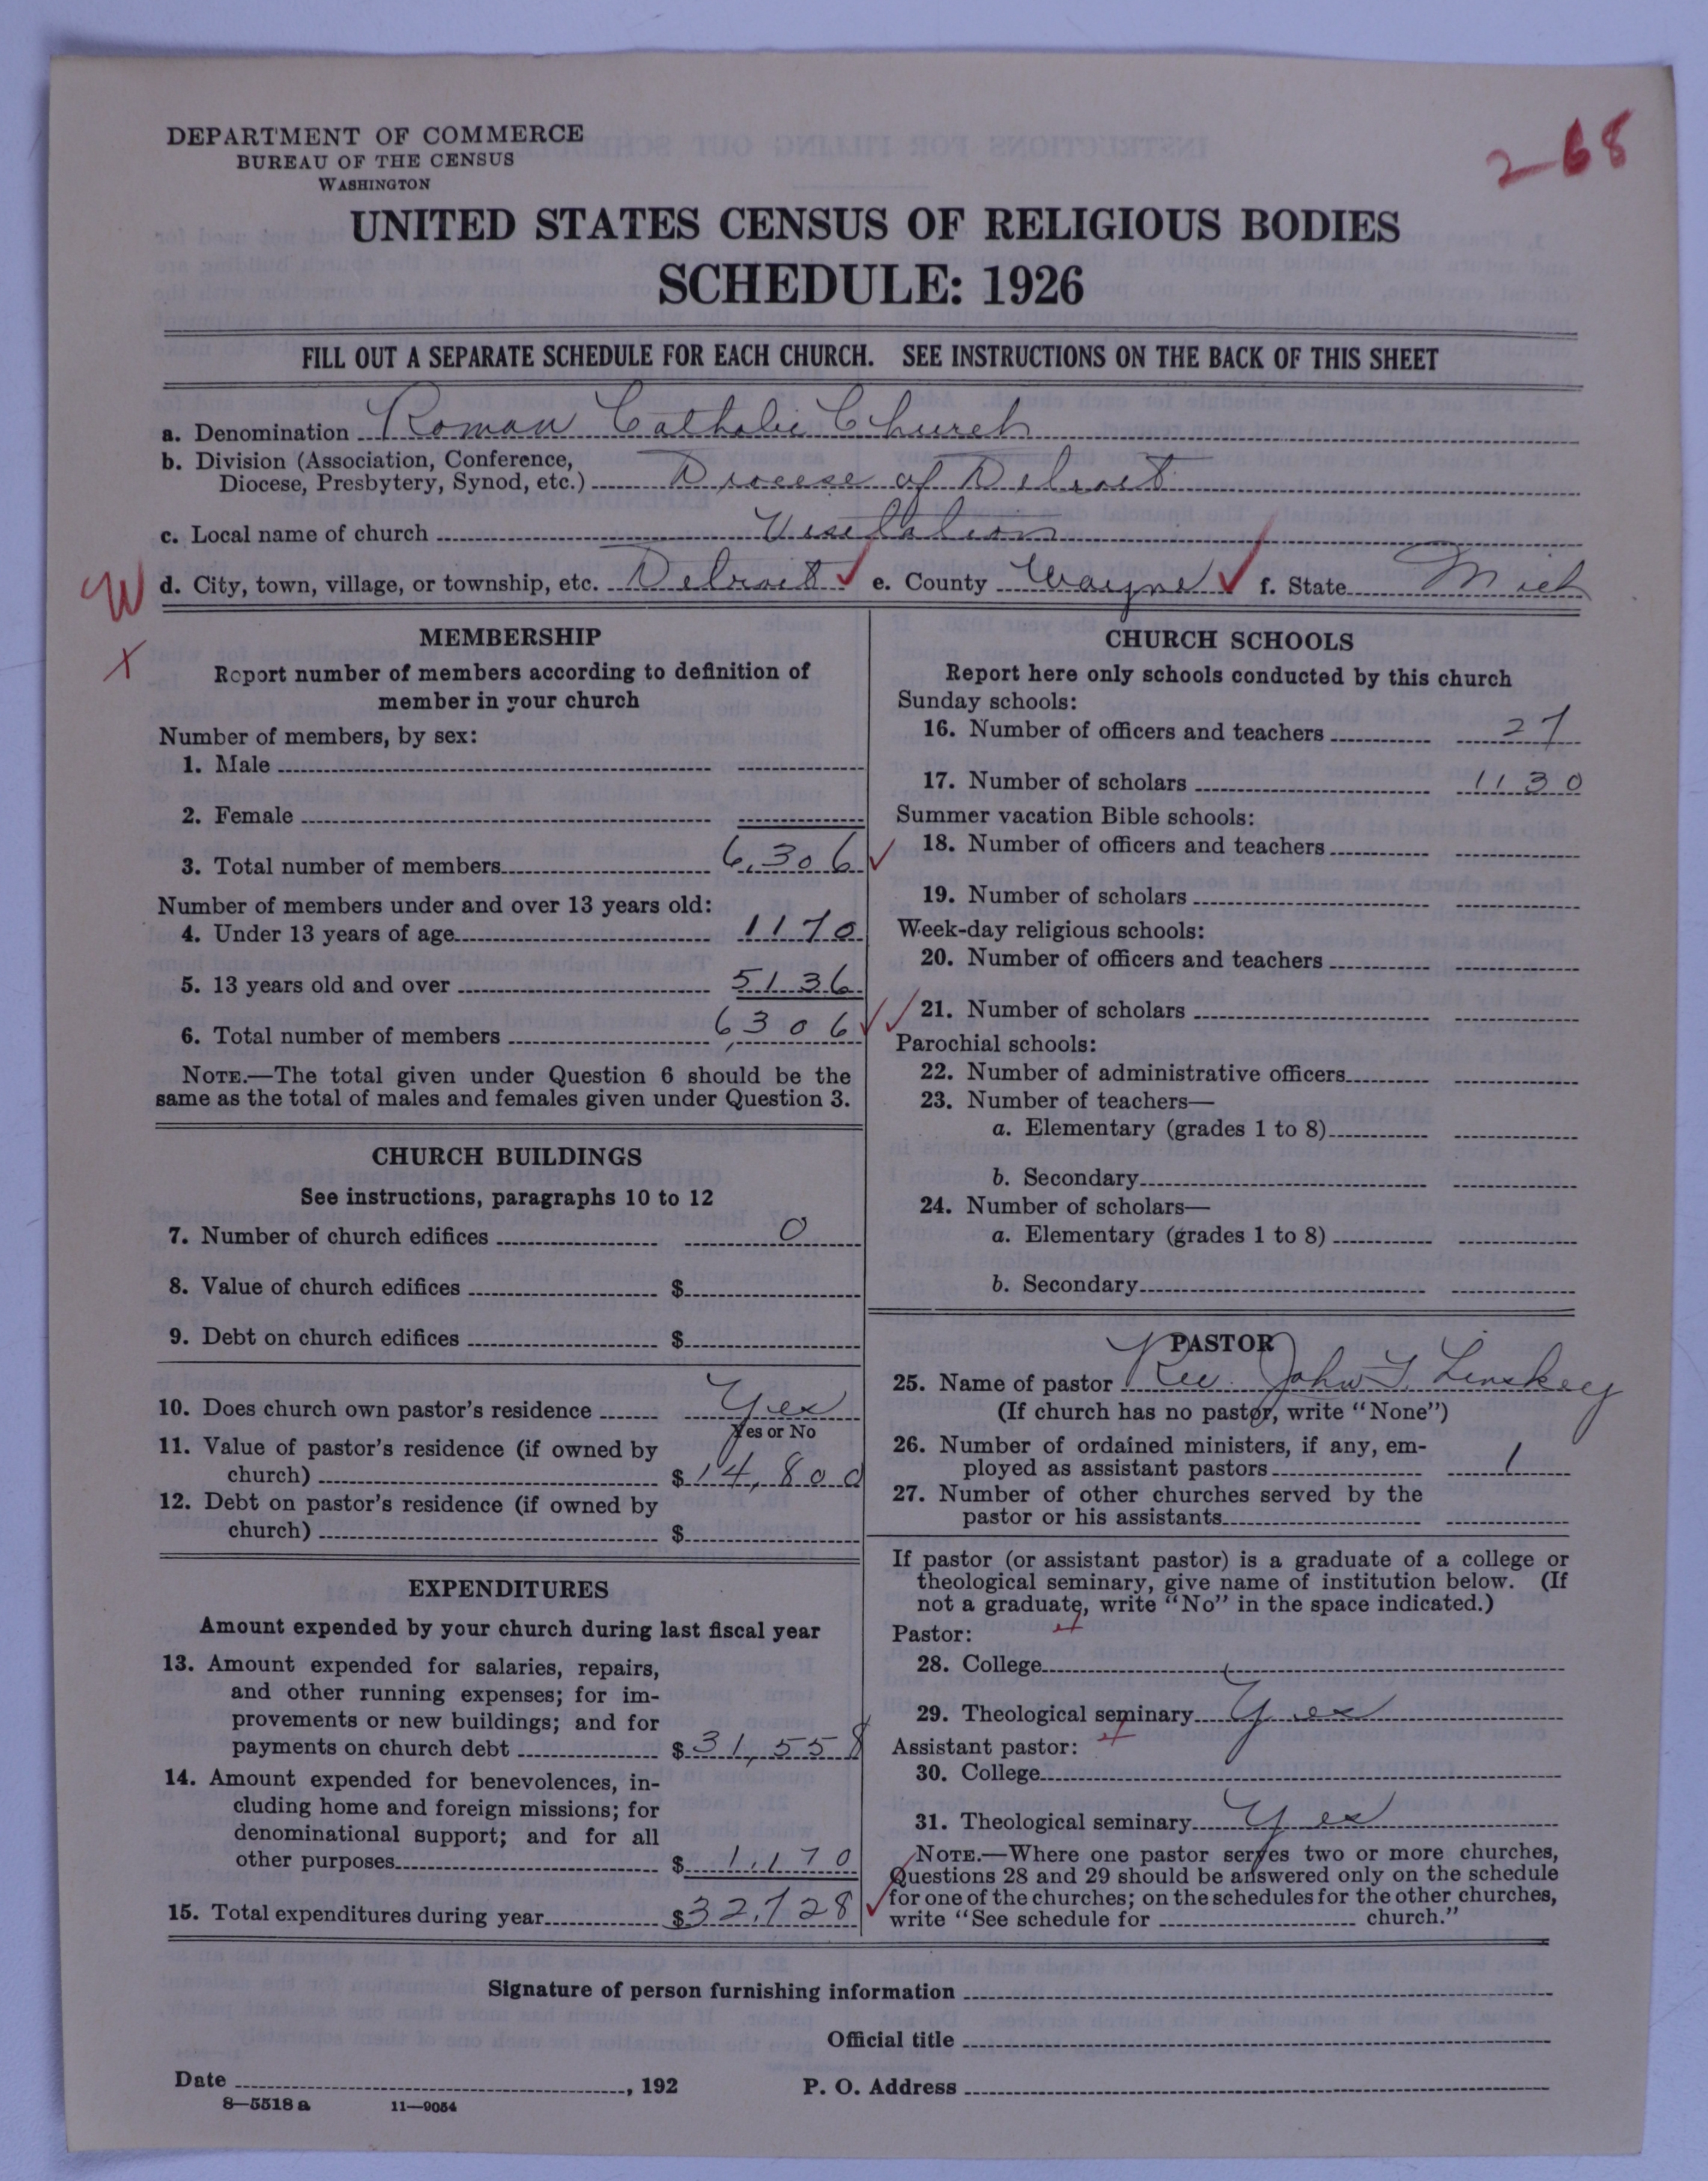 DEPARTMENT OF COMMERCE
BUREAU OF THE CENSUS
WASHINGTON
2-68
UNITED STATES CENSUS OF RELIGIOUS BODIES
SCHEDULE: 1926
FILL OUT A SEPARATE SCHEDULE FOR EACH CHURCH. SEE INSTRUCTIONS ON THE BACK OF THIS SHEET
a. Denomination Roman Catholic Church
b. Division (Association, Conference,
Diocese, Presbytery, Synod, etc.) Diocese of Detroit
c. Local name of church Visitation
W d. City, town, village, or township, etc. Detroit ✓ e. County Wayne ✓ f. State Mich
X
MEMBERSHIP
Report number of members according to definition of
member in your church
Number of members, by sex:
1. Male
2. Female
3. Total number of members 6,306 ✓
Number of members under and over 13 years old:
4. Under 13 years of age 1170
5. 13 years old and over 5136
6. Total number of members 6,306 ✓✓
NOTE.—The total given under Question 6 should be the
same as the total of males and females given under Question 3.
CHURCH BUILDINGS
See instructions, paragraphs 10 to 12
7. Number of church edifices 0
8. Value of church edifices $
9. Debt on church edifices $
10. Does church own pastor's residence Yes
Yes or No
11. Value of pastor's residence (if owned by
church) $14,800
12. Debt on pastor's residence (if owned by
church) $
EXPENDITURES
Amount expended by your church during last fiscal year
13. Amount expended for salaries, repairs,
and other running expenses; for im-
provements or new buildings; and for
payments on church debt $31,558
14. Amount expended for benevolences, in-
cluding home and foreign missions; for
denominational support; and for all
other purposes $1,170
15. Total expenditures during year $32,728 ✓
CHURCH SCHOOLS
Report here only schools conducted by this church
Sunday schools:
16. Number of officers and teachers 27
17. Number of scholars 1130
Summer vacation Bible schools:
18. Number of officers and teachers
19. Number of scholars
Week-day religious schools:
20. Number of officers and teachers
21. Number of scholars
Parochial schools:
22. Number of administrative officers
23. Number of teachers—
a. Elementary (grades 1 to 8)
b. Secondary
24. Number of scholars—
a. Elementary (grades 1 to 8)
b. Secondary
PASTOR
25. Name of pastor Rev. John F. Linskey
(If church has no pastor, write "None")
26. Number of ordained ministers, if any, em-
ployed as assistant pastors 1
27. Number of other churches served by the
pastor or his assistants
If pastor (or assistant pastor) is a graduate of a college or
theological seminary, give name of institution below. (If
not a graduate, write "No" in the space indicated.)
Pastor:
28. College
29. Theological seminary Yes
Assistant pastor:
30. College
31. Theological seminary Yes
NOTE.—Where one pastor serves two or more churches,
Questions 28 and 29 should be answered only on the schedule
for one of the churches; on the schedules for the other churches,
write "See schedule for church."
Signature of person furnishing information
Official title
Date , 192 P. O. Address
8—5518 a 11—9054